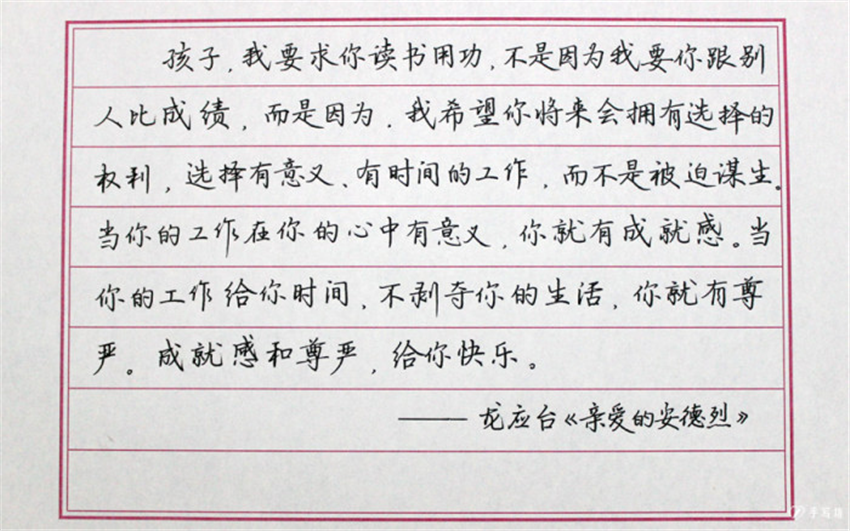 孩子，我要求你读书用功，不是因为我要你跟别
人比成绩，而是因为，我希望你将来会拥有选择的
权利，选择有意义、有时间的工作，而不是被迫谋生。
当你的工作在你的心中有意义，你就有成就感。当
你的工作给你时间，不剥夺你的生活，你就有尊
严。成就感和尊严，给你快乐。
——龙应台《亲爱的安德烈》